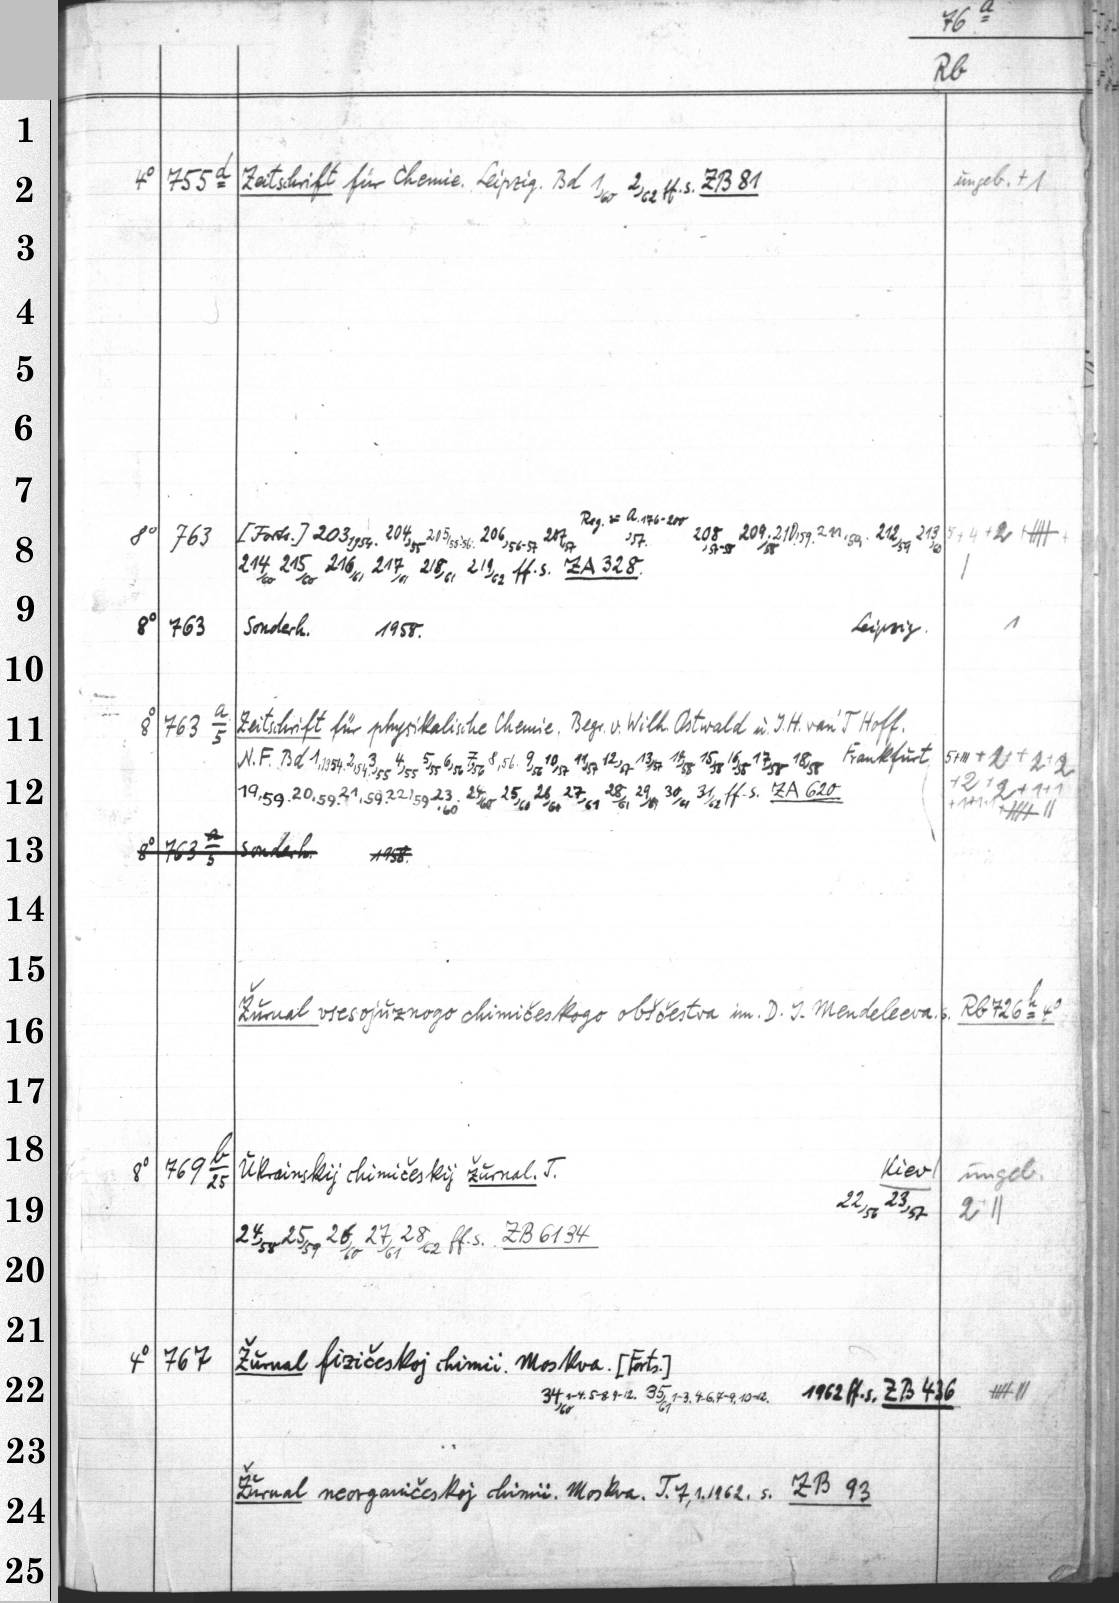 76 a
Rb
1
2 4° 755 d Zeitschrift für Chemie. Leipzig. Bd 1/60 2/62 ff. s. ZB 81 ungeb. + 1
3
4
5
6
7
Reg. z. Bd. 176-200
8 8° 763 [Forts.] 203,1954. 204/55 205/55-56. 206,56-57 207/57 ,57. 208,57-58 209/58 210,59. 211,59. 212/59 213/60 5 + 4 + 2 + 5 +
214/60 215/60 216/61 217/61 218/61 219/62 ff. s. ZA 328. 1
9 8° 763 Sonderh. 1958. Leipzig. 1
10
11 8° 763 a/5 Zeitschrift für physikalische Chemie. Begr. v. Wilh. Ostwald u. J. H. van' T Hoff.
N. F. Bd 1,1954. 2,54. 3/55 4/55 5/55 6/56 7/56 8,56. 9/56 10/57 11/57 12/57 13/57 14/58 15/58 16/58 17/58 18/58 Frankfurt
12 19,59. 20,59. 21,59. 22,59 23/60. 24/60 25/60 26/60 27/61 28/61 29/61 30/61 31/62 ff. s. ZA 620
13 8° 763 a/5 Sonderh. 1958.
14
15
16 Žurnal vsesojuznogo chimičeskogo obščestva im. D. I. Mendeleeva. s. Rb 726 h 4°
17
18 8° 769 b/25 Ukrainskij chimičeskij žurnal. T. Kiev ungeb.
19 22/56 23/57 2 ||
24/58 25/59 26/60 27/61 28/62 ff. s. ZB 6134
20
21
4° 767 Žurnal fizičeskoj chimii. Moskva. [Forts.]
22 34/60,1-4. 5-8. 9-12. 35/61,1-3. 4-6. 7-9. 10-12. 1962 ff. s. ZB 436
23
24 Žurnal neorganičeskoj chimii. Moskva. T. 7,1.1962. s. ZB 93
25